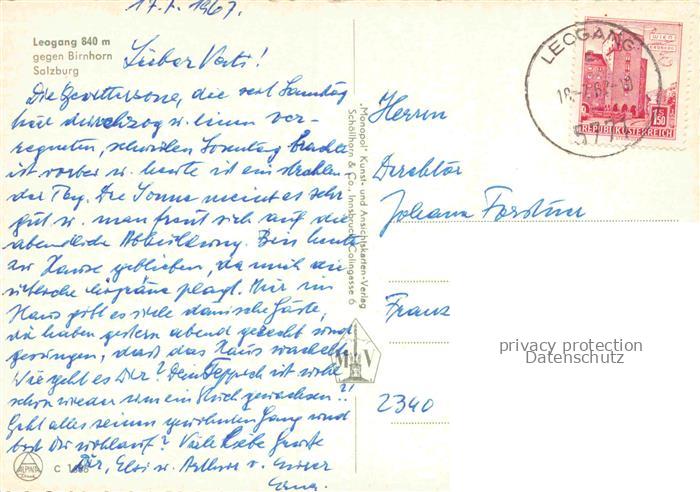 17.7.1967.
Leogang 840 m
gegen Birnhorn
Salzburg
Lieber Vati!
Die Gewitterzone, die seit Samstag
hier durchzog u. einen ver-
regneten, schwülen Sonntag brachte
ist vorbei u. heute ist ein strahlen
der Tag. Die Sonne meint es sehr
gut u. man freut sich auf die
abendliche Abkühlung. Bin heute
zu Hause geblieben, da mich die
übliche Migräne plagt. Hier im
Haus gibt es viele dänische Gäste,
die haben gestern abend gezecht und
gesungen, daß das Haus wackelte.
Wie geht es Dir? Dein Teppich ist wohl
schon wieder um ein Stück gewachsen?!
Geht alles seinen gewohnten Gang und
bist Du wohlauf? Viele liebe Grüße
Dir, u. v.
ALPINA
Druck
"Monopol" Kunst- und Ansichtskarten-Verlag
Schöllhorn & Co., Innsbruck, Colingasse 6
M V
LEOGANG
5771
WIEN
1.50
REPUBLIK ÖSTERREICH
Herrn
Direktor
Johann
Franz
2340
privacy protection
Datenschutz